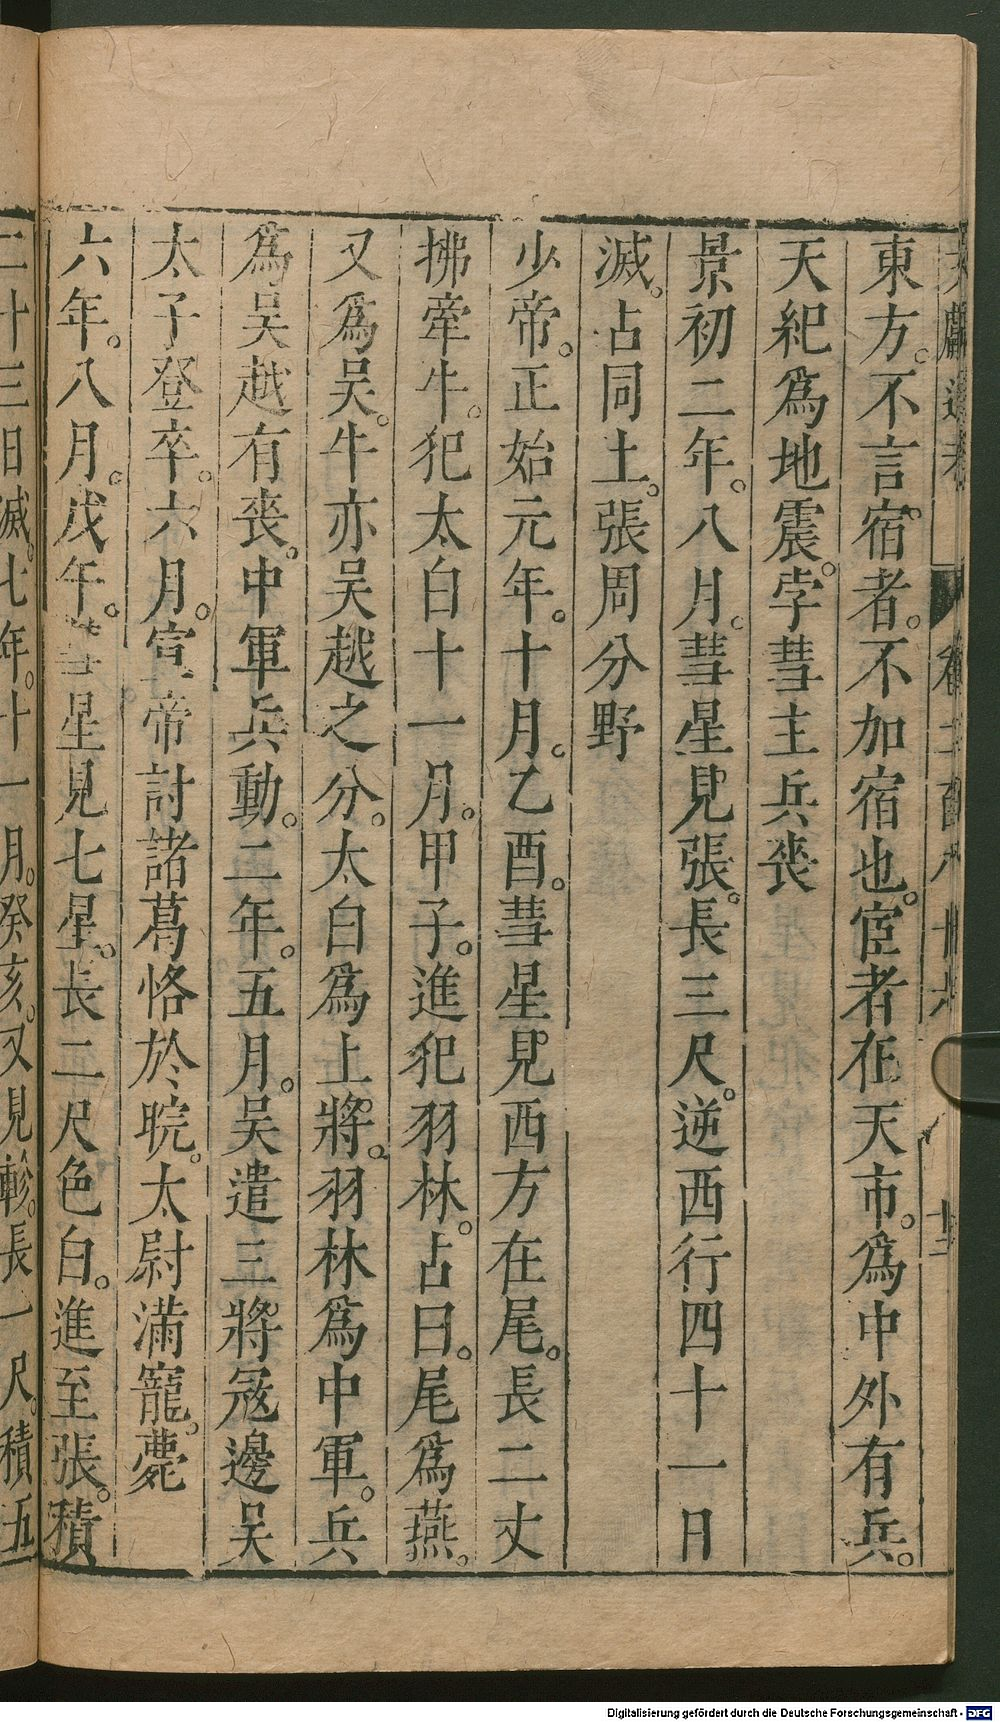 文獻通考 卷二百八十六 十三
東方。不言宿者。不加宿也。宦者在天市。爲中外有兵。
天紀爲地震。孛彗主兵喪
景初二年。八月。彗星見張。長三尺。逆西行四十一日
滅。占同上。張周分野
少帝。正始元年。十月。乙酉。彗星見西方在尾。長二丈
拂牽牛。犯太白十一月。甲子。進犯羽林。占曰。尾爲燕。
又爲吳。牛亦吳越之分。太白爲上將。羽林爲中軍。兵
爲吳越有喪。中軍兵動。二年。五月。吳遣三將寇邊吳
太子登卒。六月。宣帝討諸葛恪於皖。太尉滿寵。薨
六年。八月。戊午。彗星見七星。長二尺色白。進至張。積
二十三日滅。七年。十一月。癸亥。又見軫。長一尺。積五
Digitalisierung gefördert durch die Deutsche Forschungsgemeinschaft - DFG